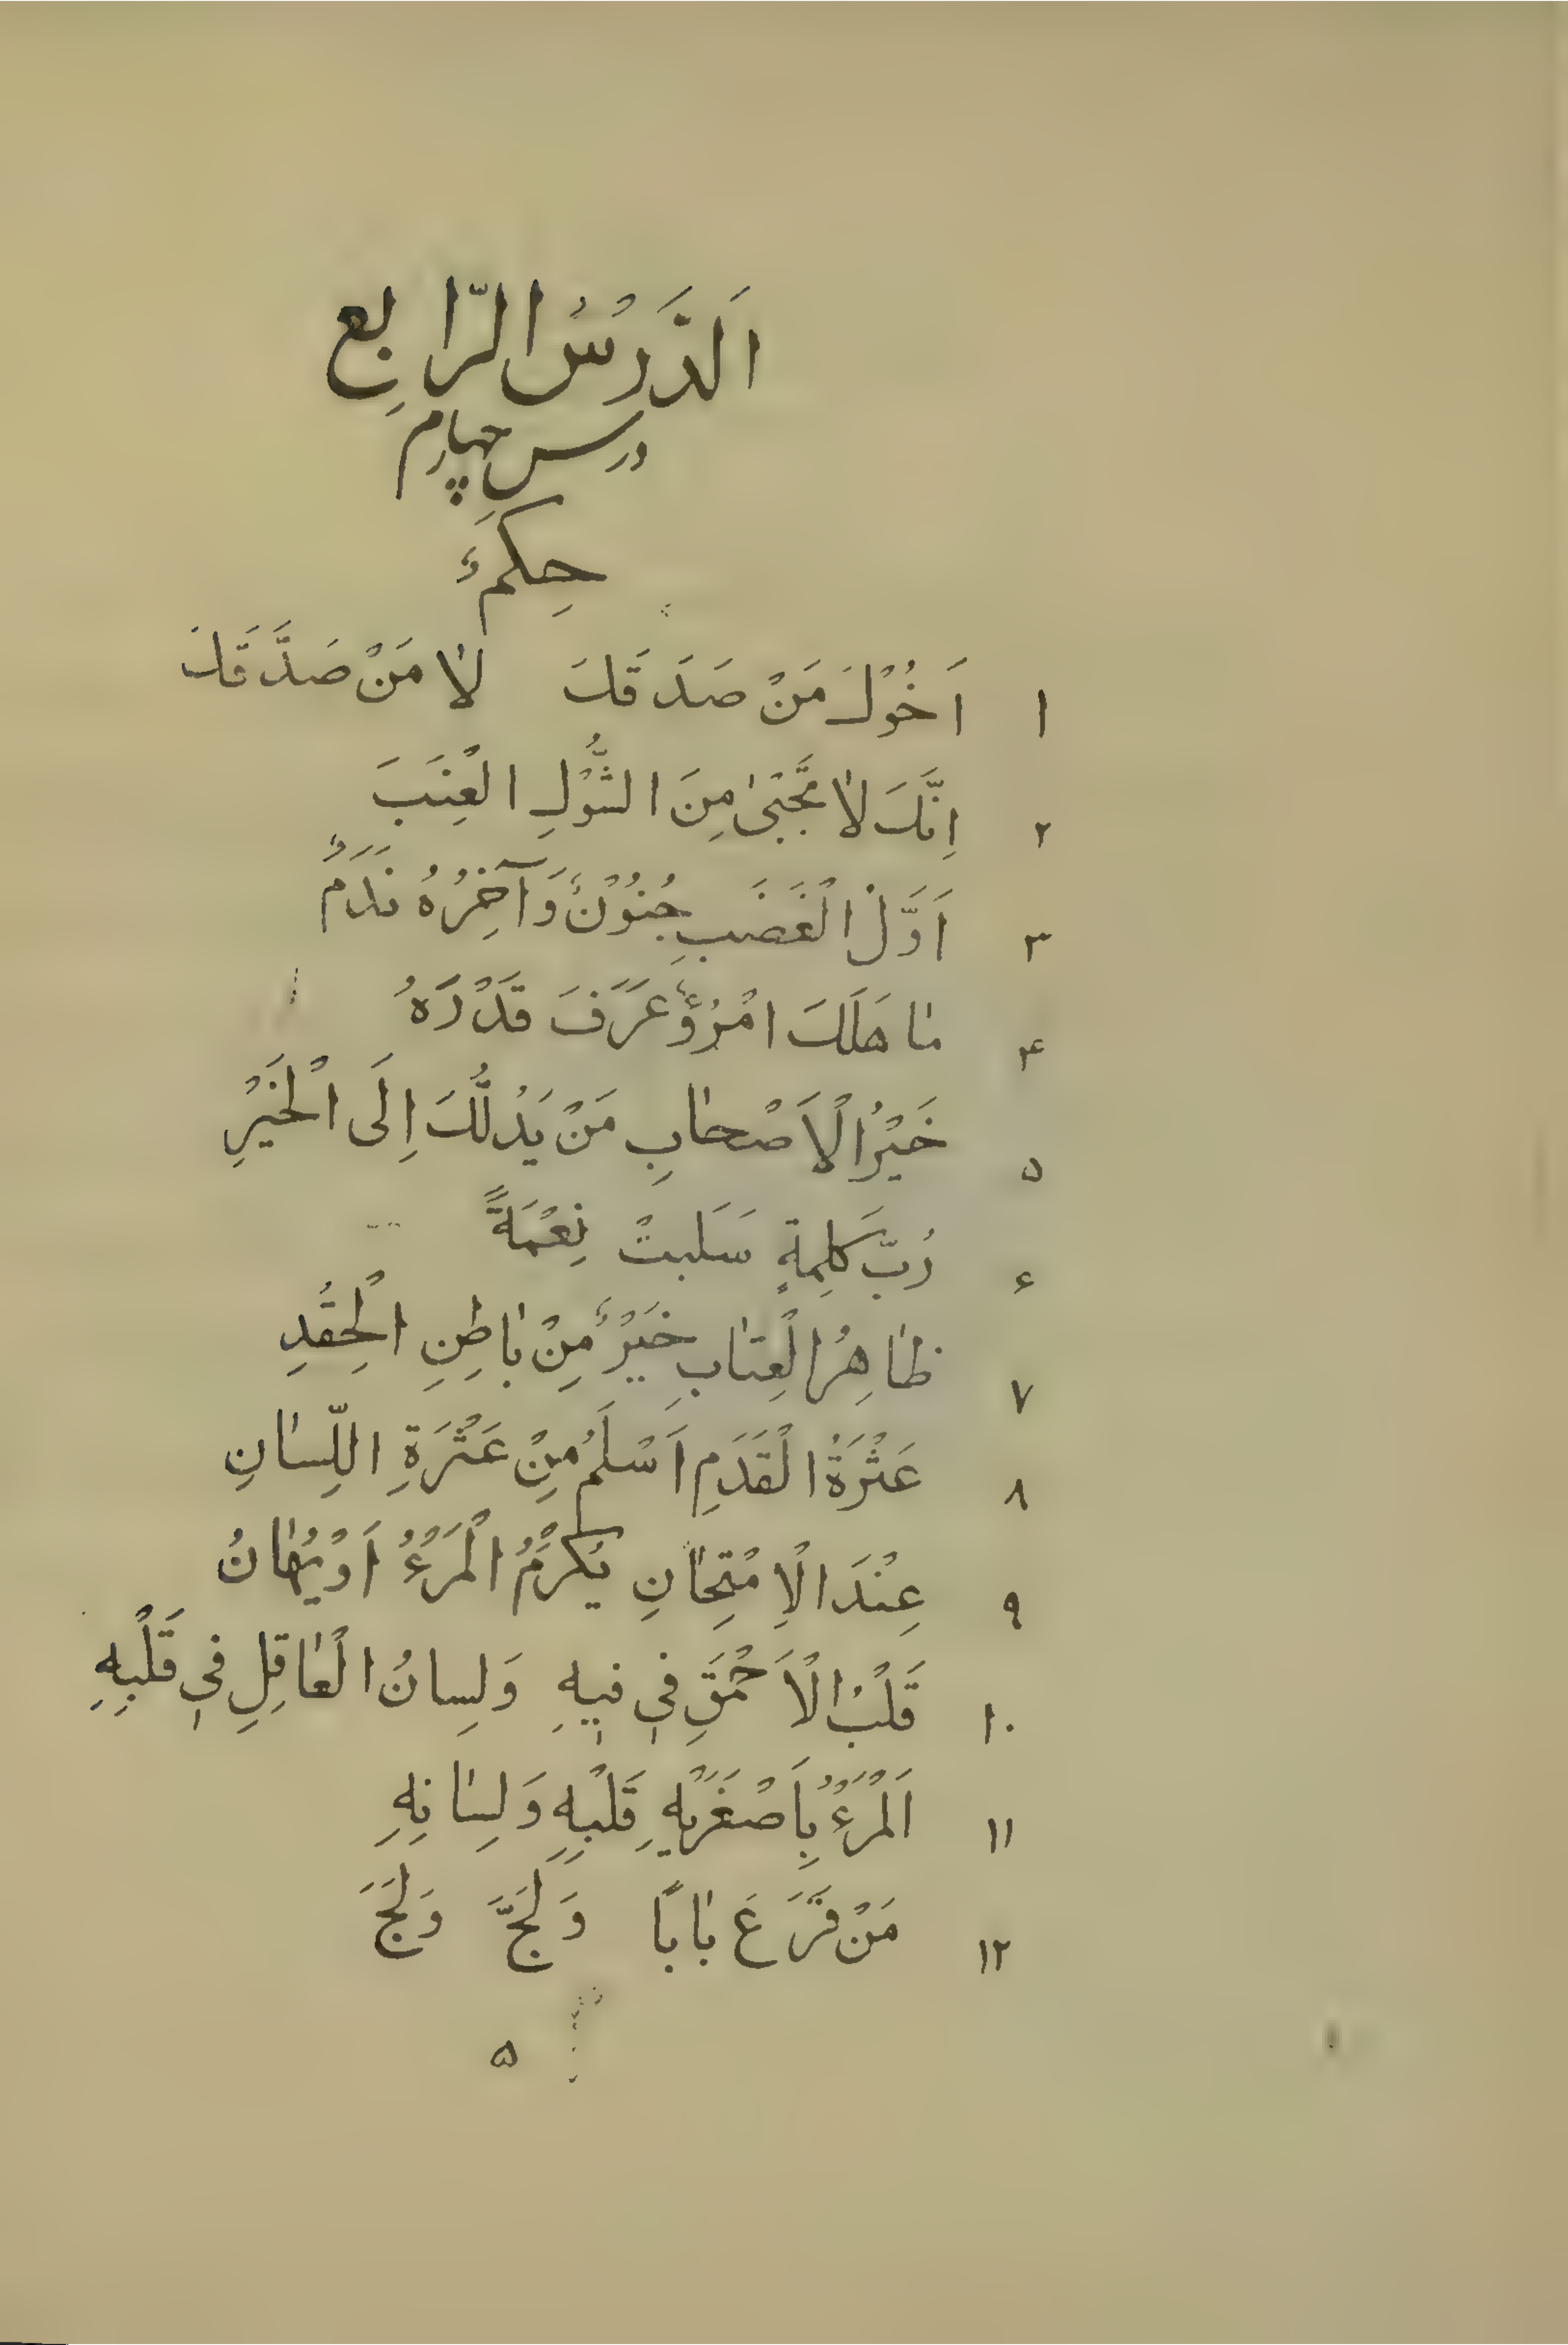 اَلدَّرْسُ الرّابِع
درس چهارم
حِکَمٌ
۱ اَخُوْكَ مَنْ صَدَقَكَ لاٰ مَنْ صَدَّقَكَ
۲ اِنَّكَ لاٰ تَجْنٖى مِنَ الشَّوْكِ الْعِنَبَ
۳ اَوَّلُ الْغَضَبِ جُنُوْنٌ وَآخِرُهُ نَدَمٌ
۴ مٰا هَلَكَ امْرُؤٌ عَرَفَ قَدْرَهُ
۵ خَيْرُ الْاَصْحٰابِ مَنْ يَدُلُّكَ اِلَى الْخَيْرِ
۶ رُبَّ كَلِمَةٍ سَلَبَتْ نِعْمَةً
۷ ظٰاهِرُ الْعِتٰابِ خَيْرٌ مِنْ بٰاطِنِ الْحِقْدِ
۸ عَثْرَةُ الْقَدَمِ اَسْلَمُ مِنْ عَثْرَةِ اللِّسٰانِ
۹ عِنْدَ الْاِمْتِحٰانِ يُكْرَمُ الْمَرْءُ اَوْ يُهٰانُ
۱۰ قَلْبُ الْاَحْمَقِ فٖى فٖيهِ وَلِسانُ الْعٰاقِلِ فٖى قَلْبِهِ
۱۱ اَلْمَرْءُ بِاَصْغَرَيْهِ قَلْبِهِ وَلِسٰانِهِ
۱۲ مَنْ قَرَعَ بٰابًا وَلَجَّ وَلَجَ
۵